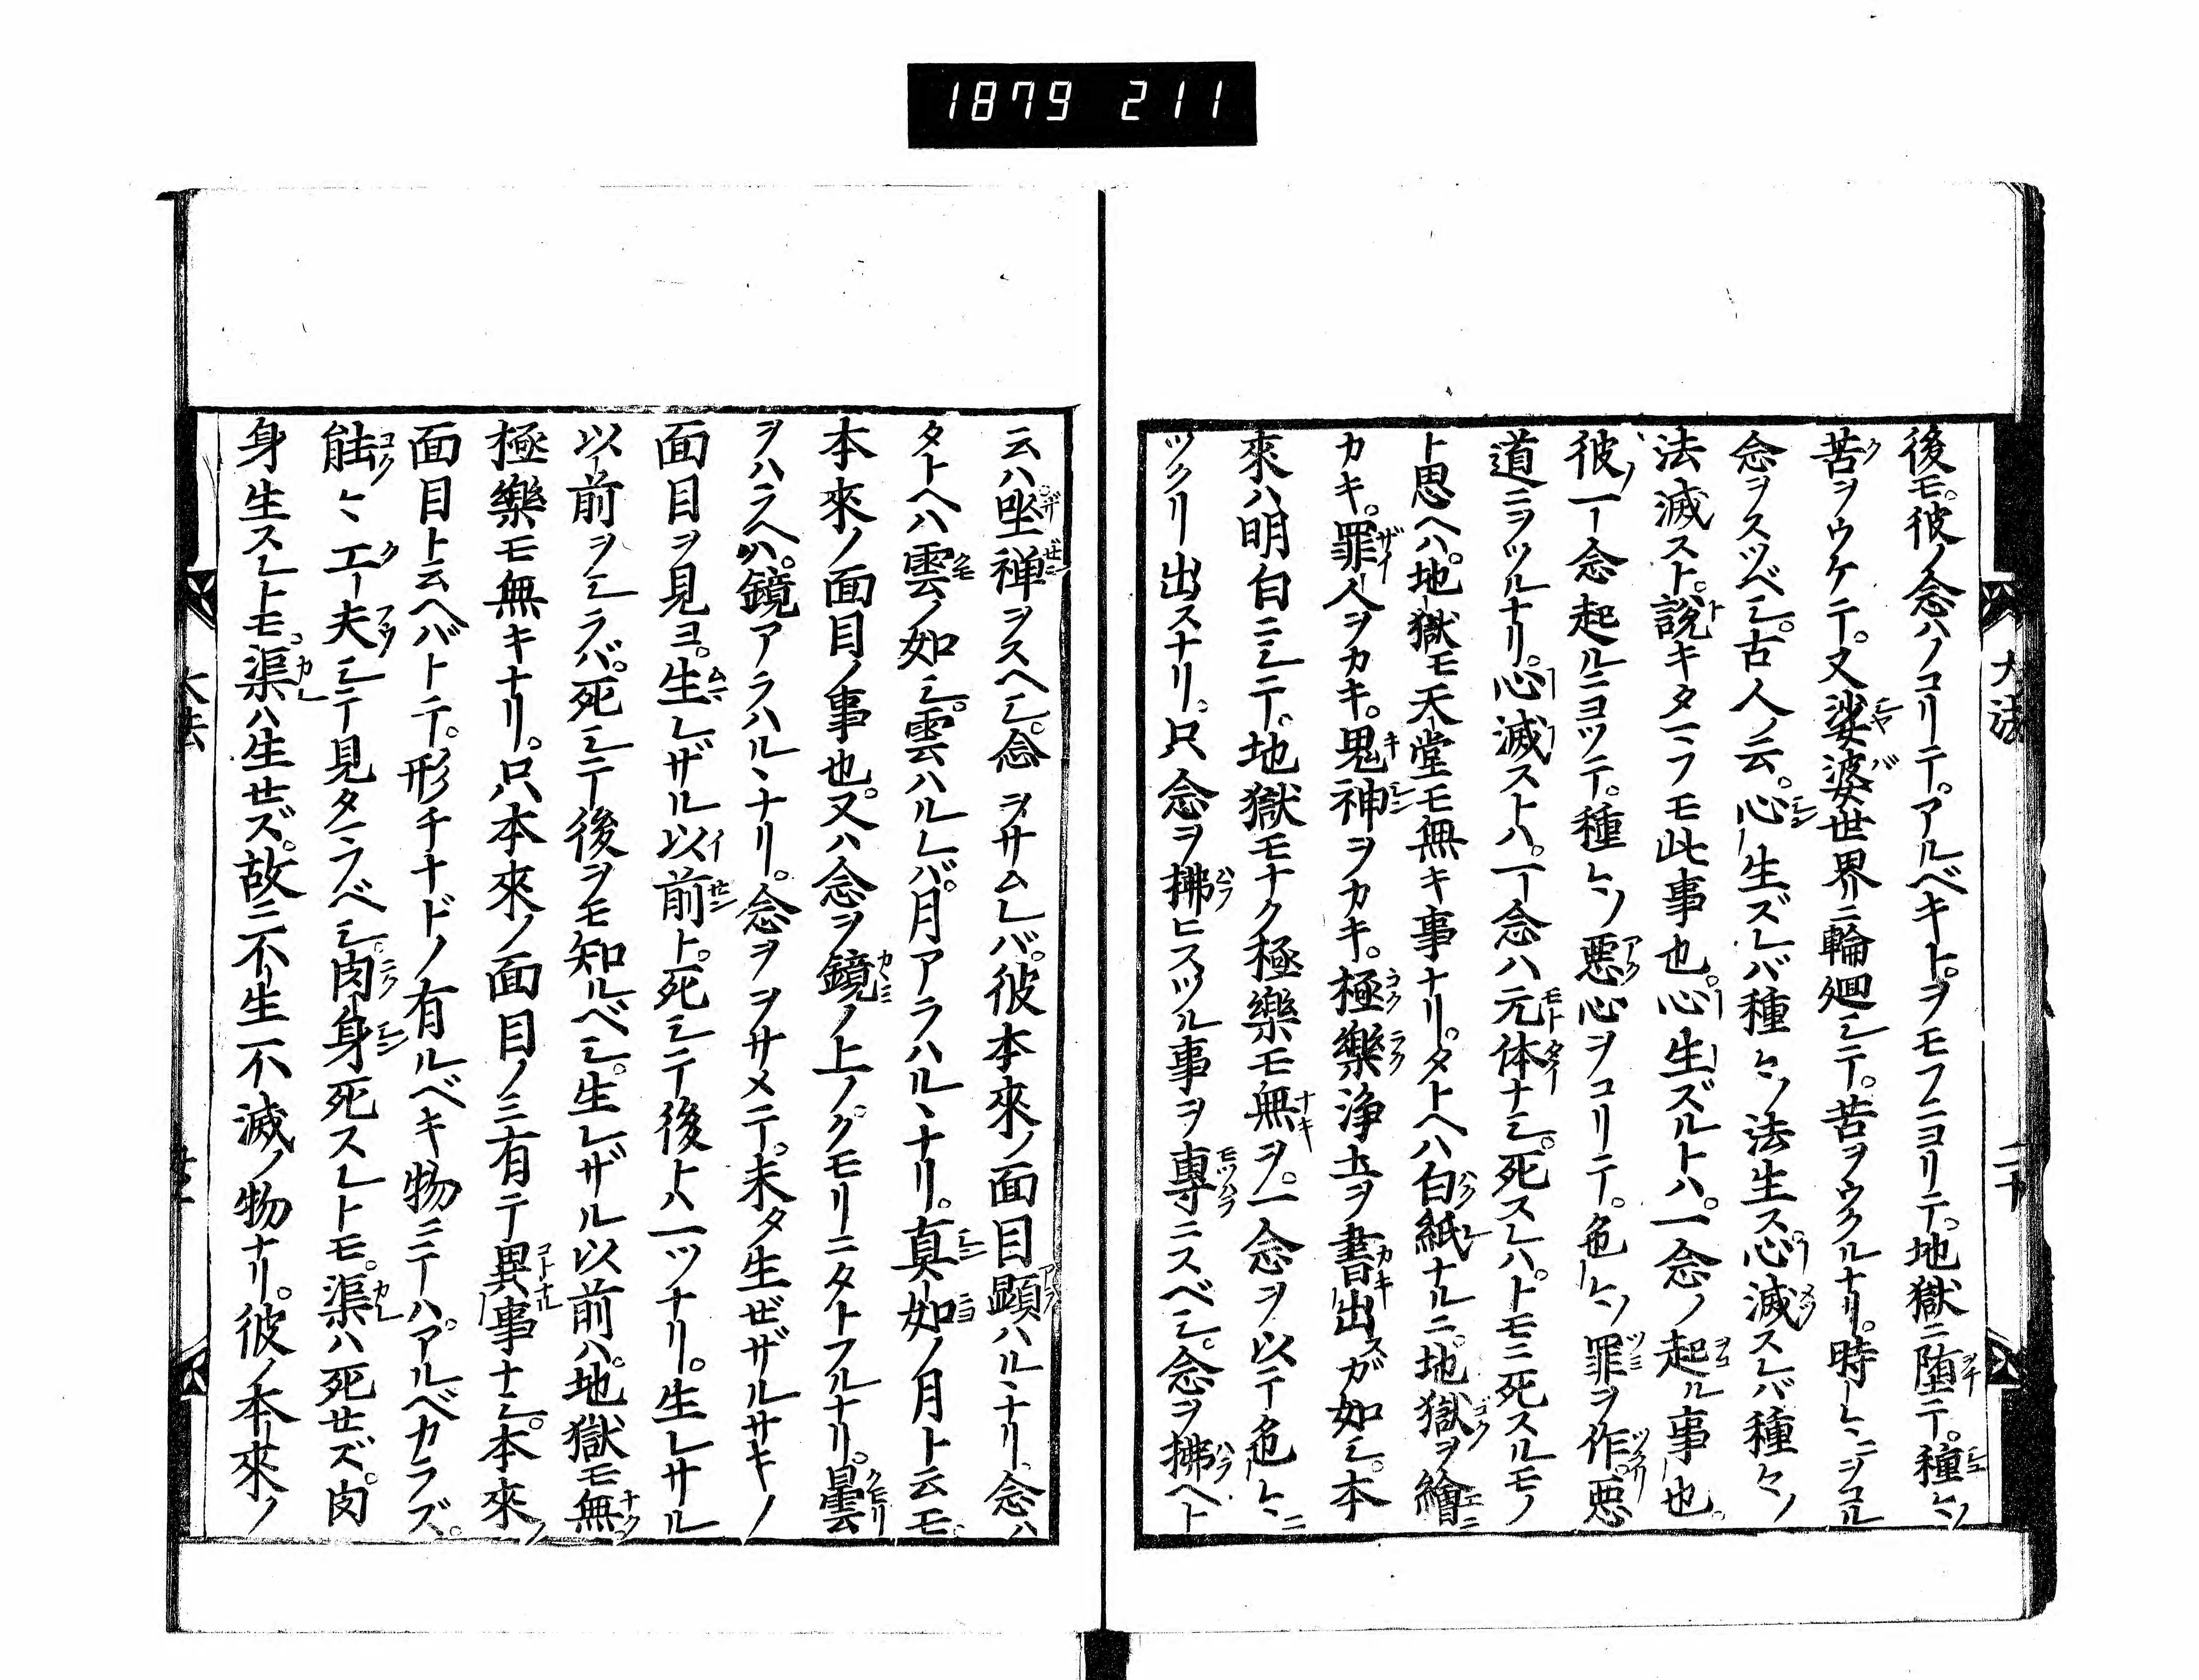 1879 211
後モ。彼ノ念ハノコリテ。アルベキト。ヲモフニヨリテ。地獄ニ堕テ。種々ノ
苦ヲウケテ。又娑婆世界ニ輪廻シテ。苦ヲウクルナリ。時々ニヲコル
念ヲスツベシ。古人ノ云。心生ズレバ種々ノ法生ス。心滅スレバ種々ノ
法滅スト。説キタマフモ此事也。心生ズルトハ。一念ノ起ル事也。
彼ノ一念起ルニヨツテ。種々ノ悪心ヲコリテ。色々ノ罪ヲ作。悪
道ニヲツルナリ。心滅ストハ。一念ハ元体ナシ。死スレハ。トモニ死スルモノ
ト思ヘハ。地獄モ天堂モ無キ事ナリ。タトヘハ白紙ナルニ。地獄ヲ繪ニ
カキ。罪人ヲカキ。鬼神ヲカキ。極樂浄土ヲ書出スガ如シ。本
來ハ明白ニシテ。地獄モナク極樂モ無ヲ。一念ヲ以テ色々ニ
ツクリ出スナリ。只念ヲ拂ヒスツル事ヲ專ニスベシ。念ヲ拂ヘト
云ハ坐禅ヲスヘシ。念ヲサムレバ。彼本來ノ面目顕ハルヽナリ。念ハ
タトヘハ雲ノ如シ。雲ハルレバ。月アラハルヽナリ。真如ノ月ト云モ。
本來ノ面目ノ事也。又ハ念ヲ鏡ノ上ノ。クモリニタトフルナリ。曇
ヲハラヘハ。鏡アラハルヽナリ。念ヲヲサメテ。未タ生ゼザルサキノ
面目ヲ見ヨ。生レザル以前ト。死シテ後トハ一ツナリ。生レサル
以前ヲシラバ。死シテ後ヲモ知ルベシ。生レザル以前ハ。地獄モ無ク
極樂モ無キナリ。只本來ノ面目ノミ有テ異事ナシ。本來ノ
面目ト云ヘバトテ。形チナドノ有ルベキ物ニテハ。アルベカラズ。
能々工夫シテ見タマフベシ。肉身死スレトモ。渠ハ死セズ。肉
身生スレトモ。渠ハ生セズ。故ニ不生不滅ノ物ナリ。彼ノ本來ノ